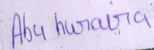 Abu huraira